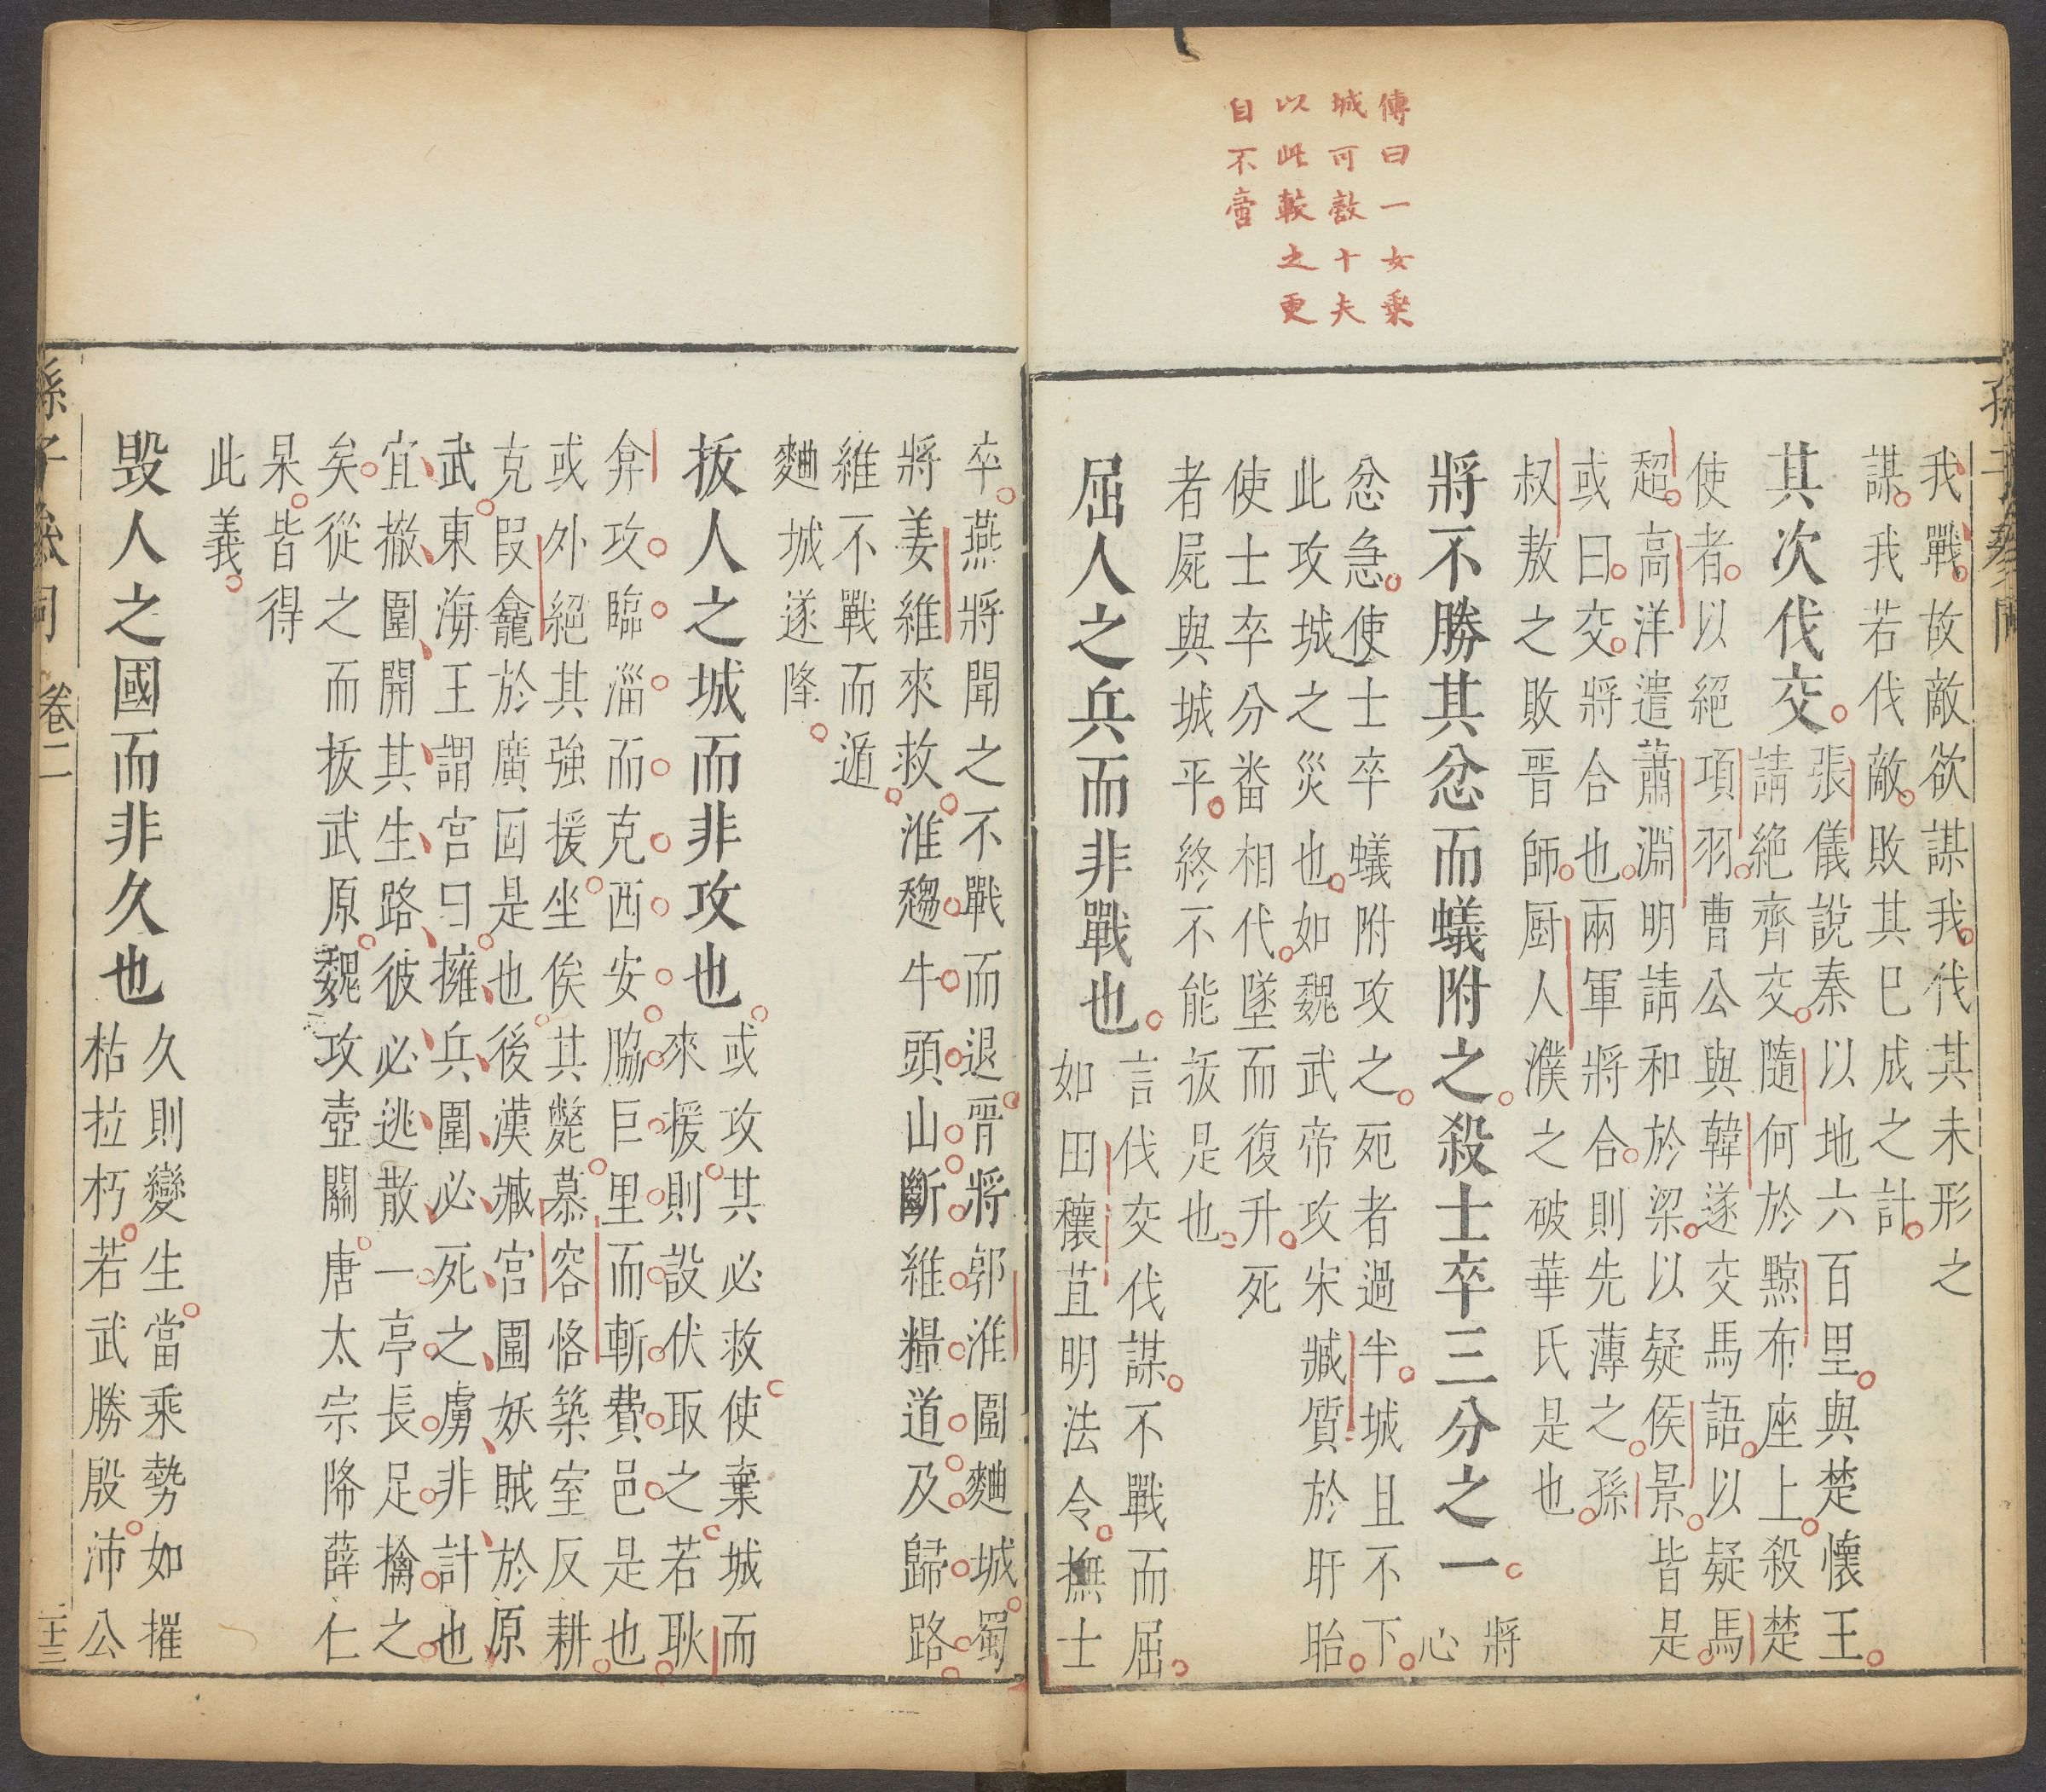 傳曰一女乘
城可敵十夫
以此較之更
自不啻
孫子參同
我戰故敵欲謀我伐其未形之
謀我若伐敵敗其巳成之計
其次伐交
張儀說秦以地六百里與楚懷王
請絕齊交隨何於黥布座上殺楚
使者以絕項羽曹公與韓遂交馬語以疑馬
超高洋遣蕭淵明請和於梁以疑侯景皆是
或曰交將合也兩軍將合則先薄之孫
叔敖之敗晉師厨人濮之破華氏是也
將不勝其忿而蟻附之殺士卒三分之一
將
心
忿急使士卒蟻附攻之死者過半城且不下
此攻城之災也如魏武帝攻宋臧質於盱眙
使士卒分畨相代墜而復升死
者屍與城平終不能㧞是也
屈人之兵而非戰也
言伐交伐謀不戰而屈
如田穰苴明法令撫士
卒燕將聞之不戰而退晉將郭淮圍麯城蜀
將姜維來救淮趨牛頭山斷維糧道及歸路
維不戰而遁
麯城遂降
㧞人之城而非攻也
或攻其必救使棄城而
來援則設伏取之若耿
弇攻臨淄而克西安脇巨里而斬費邑是也
或外絕其強援坐俟其斃慕容恪築室反耕
克叚龕於廣固是也後漢臧宮圍妖賊於原
武東海王謂宮曰擁兵圍必死之虜非計也
宜撤圍開其生路彼必逃散一亭長足擒之
矣從之而㧞武原魏攻壺關唐太宗降薛仁
杲皆得
此義
毀人之國而非久也
久則變生當乘勢如摧
枯拉朽若武勝殷沛公
孫子參同 卷二 二十三